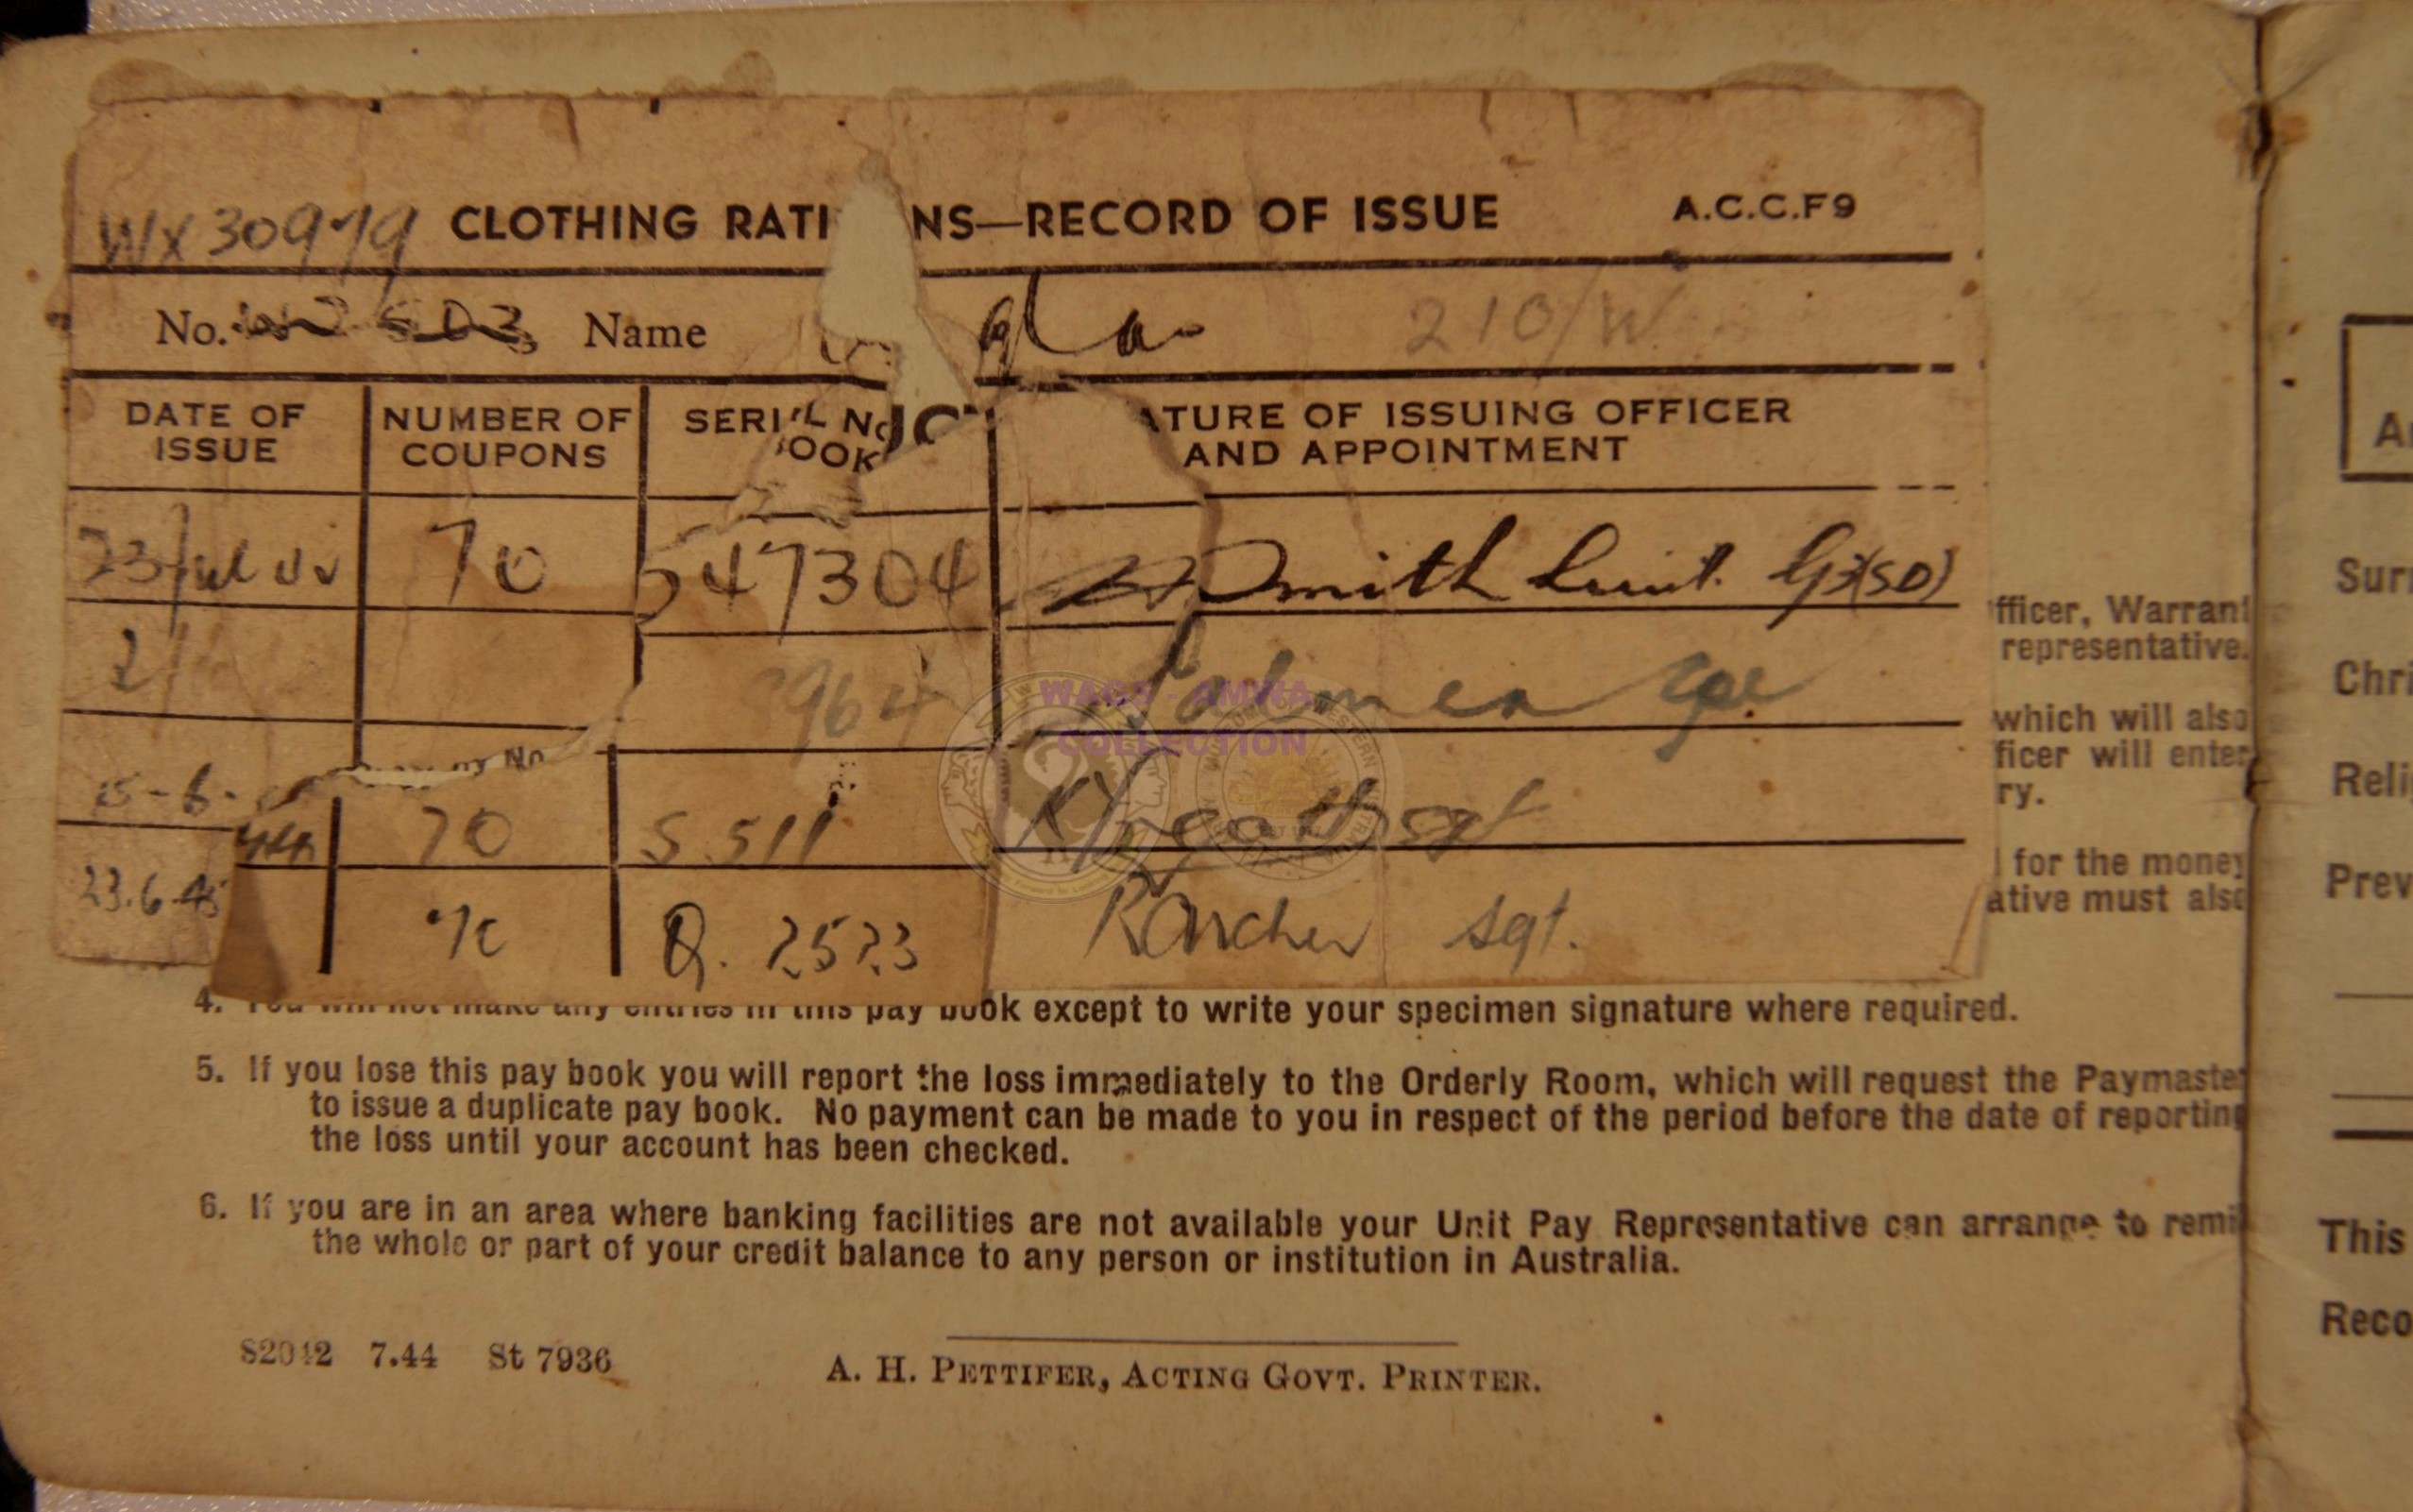 WX30979 CLOTHING RATI NS—RECORD OF ISSUE A.C.C.F9
No. Name 210/W
DATE OF ISSUE NUMBER OF COUPONS SERI L No OOK ATURE OF ISSUING OFFICER AND APPOINTMENT
23 70 547304 Smith Lieut. G3(SD)
2/ 964
No
15-6- 70 S 511 Sgt
23.6.45 Q. 2523 R Archer Sgt.
WAGS - AMWA
COLLECTION
fficer, Warrant
representative.
which will also
ficer will enter
ry.
for the money
ative must also
4. You will not make any entries in this pay book except to write your specimen signature where required.
5. If you lose this pay book you will report the loss immediately to the Orderly Room, which will request the Paymaster
to issue a duplicate pay book. No payment can be made to you in respect of the period before the date of reporting
the loss until your account has been checked.
6. If you are in an area where banking facilities are not available your Unit Pay Representative can arrange to remi
the whole or part of your credit balance to any person or institution in Australia.
S2042 7.44 St 7936
A. H. PETTIFER, ACTING GOVT. PRINTER.
A
Sur
Chri
Reli
Prev
This
Reco